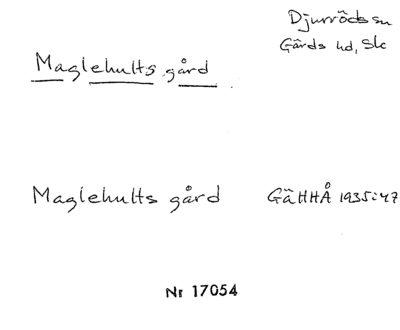 Djurröds sn
Gärds hd, Sk
Maglehults gård
Maglehults gård GäHHÅ 1935:47
Nr 17054